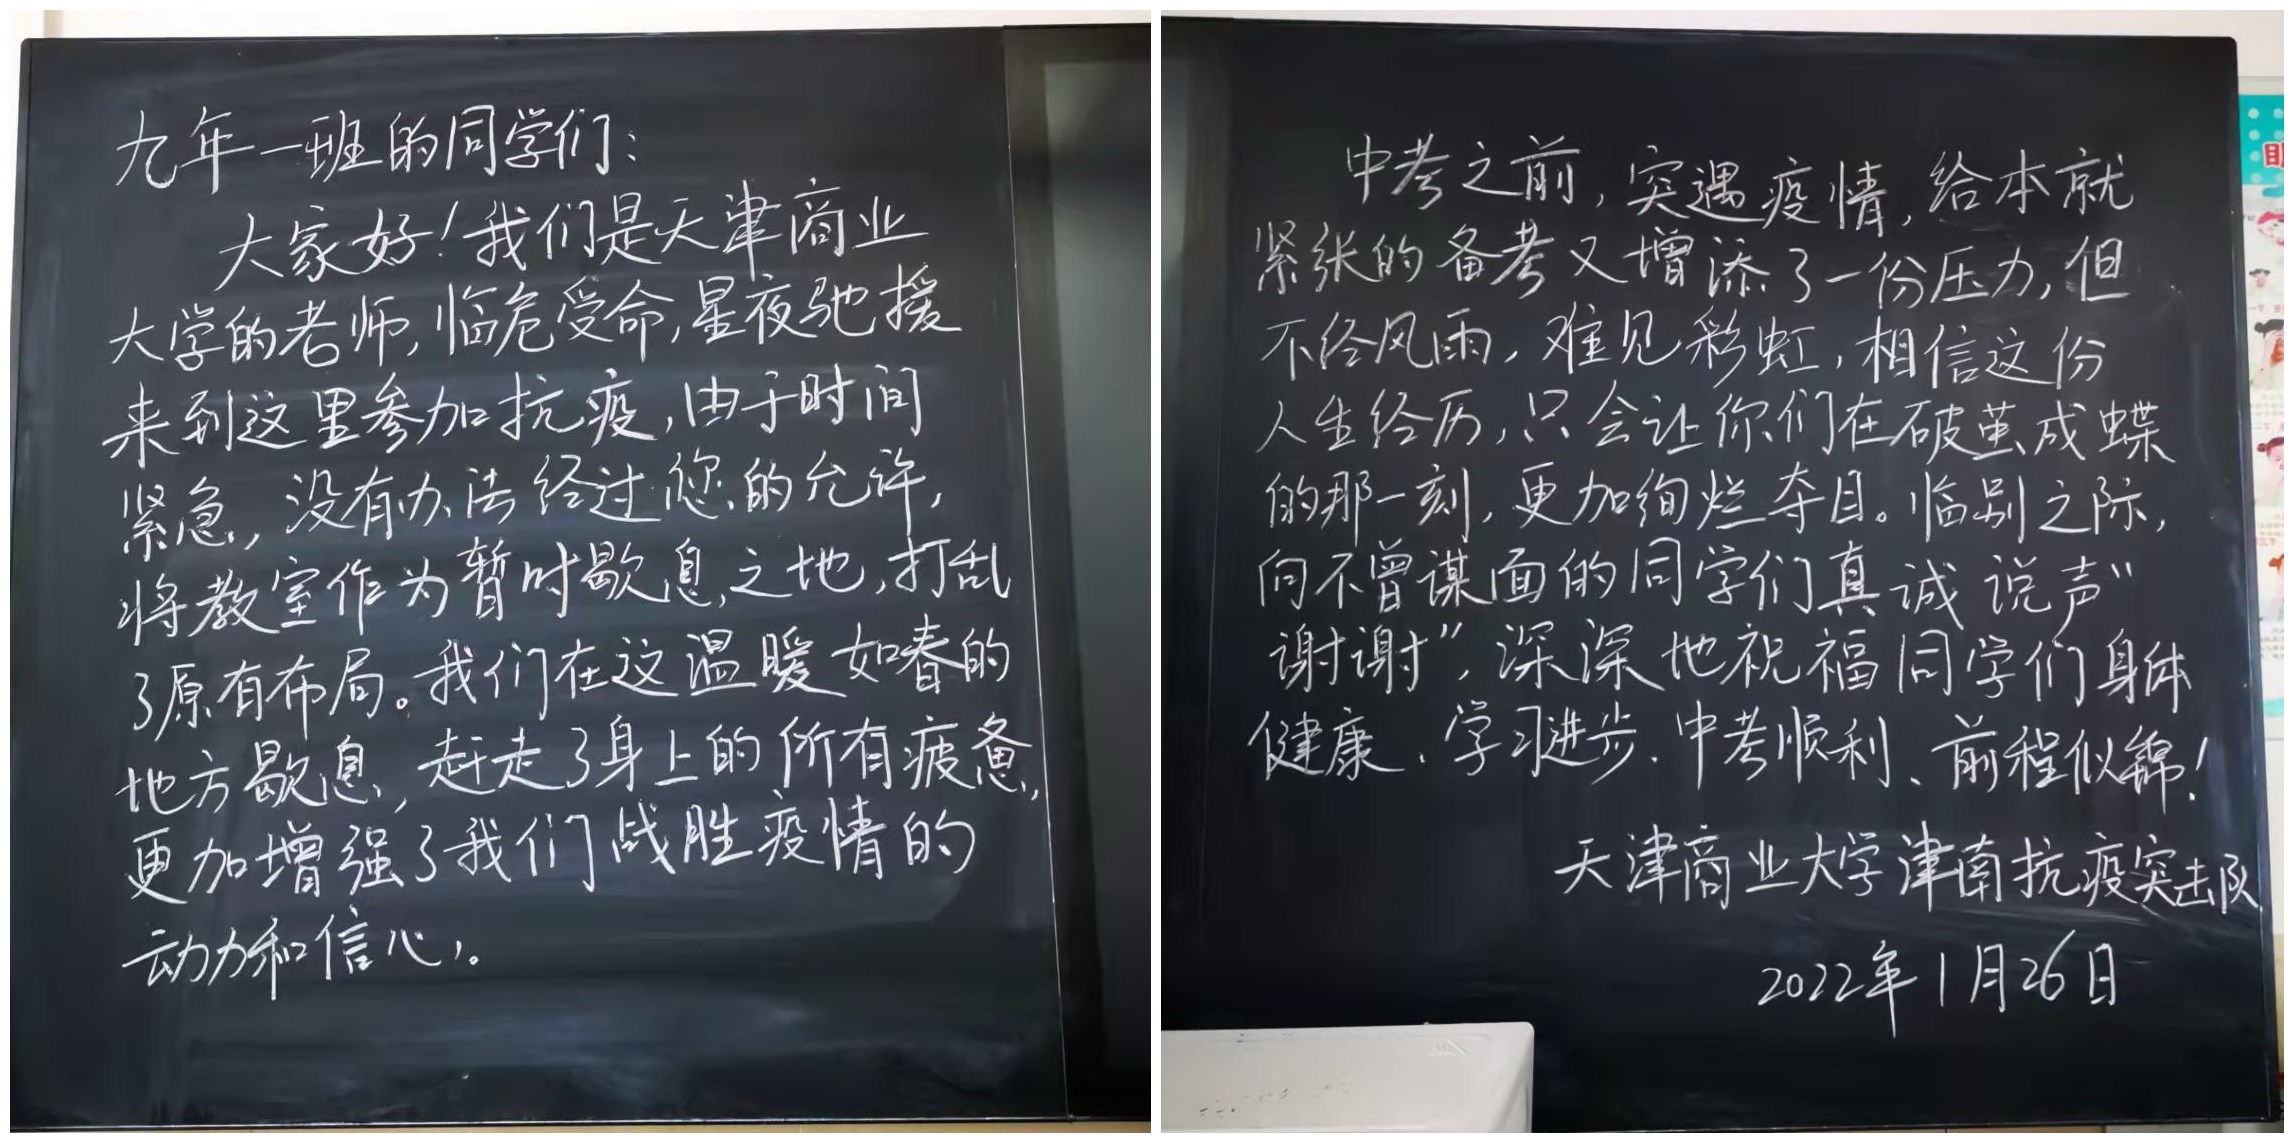 九年一班的同学们：
大家好！我们是天津商业
大学的老师，临危受命，星夜驰援
来到这里参加抗疫，由于时间
紧急，没有办法经过您的允许，
将教室作为暂时歇息之地，打乱
了原有布局。我们在这温暖如春的
地方歇息，赶走了身上的所有疲惫，
更加增强了我们战胜疫情的
动力和信心。
中考之前，突遇疫情，给本就
紧张的备考又增添了一份压力，但
不经风雨，难见彩虹，相信这份
人生经历，只会让你们在破茧成蝶
的那一刻，更加绚烂夺目。临别之际，
向不曾谋面的同学们真诚说声“
谢谢”，深深地祝福同学们身体
健康、学习进步、中考顺利、前程似锦！
天津商业大学津南抗疫突击队
2022年1月26日